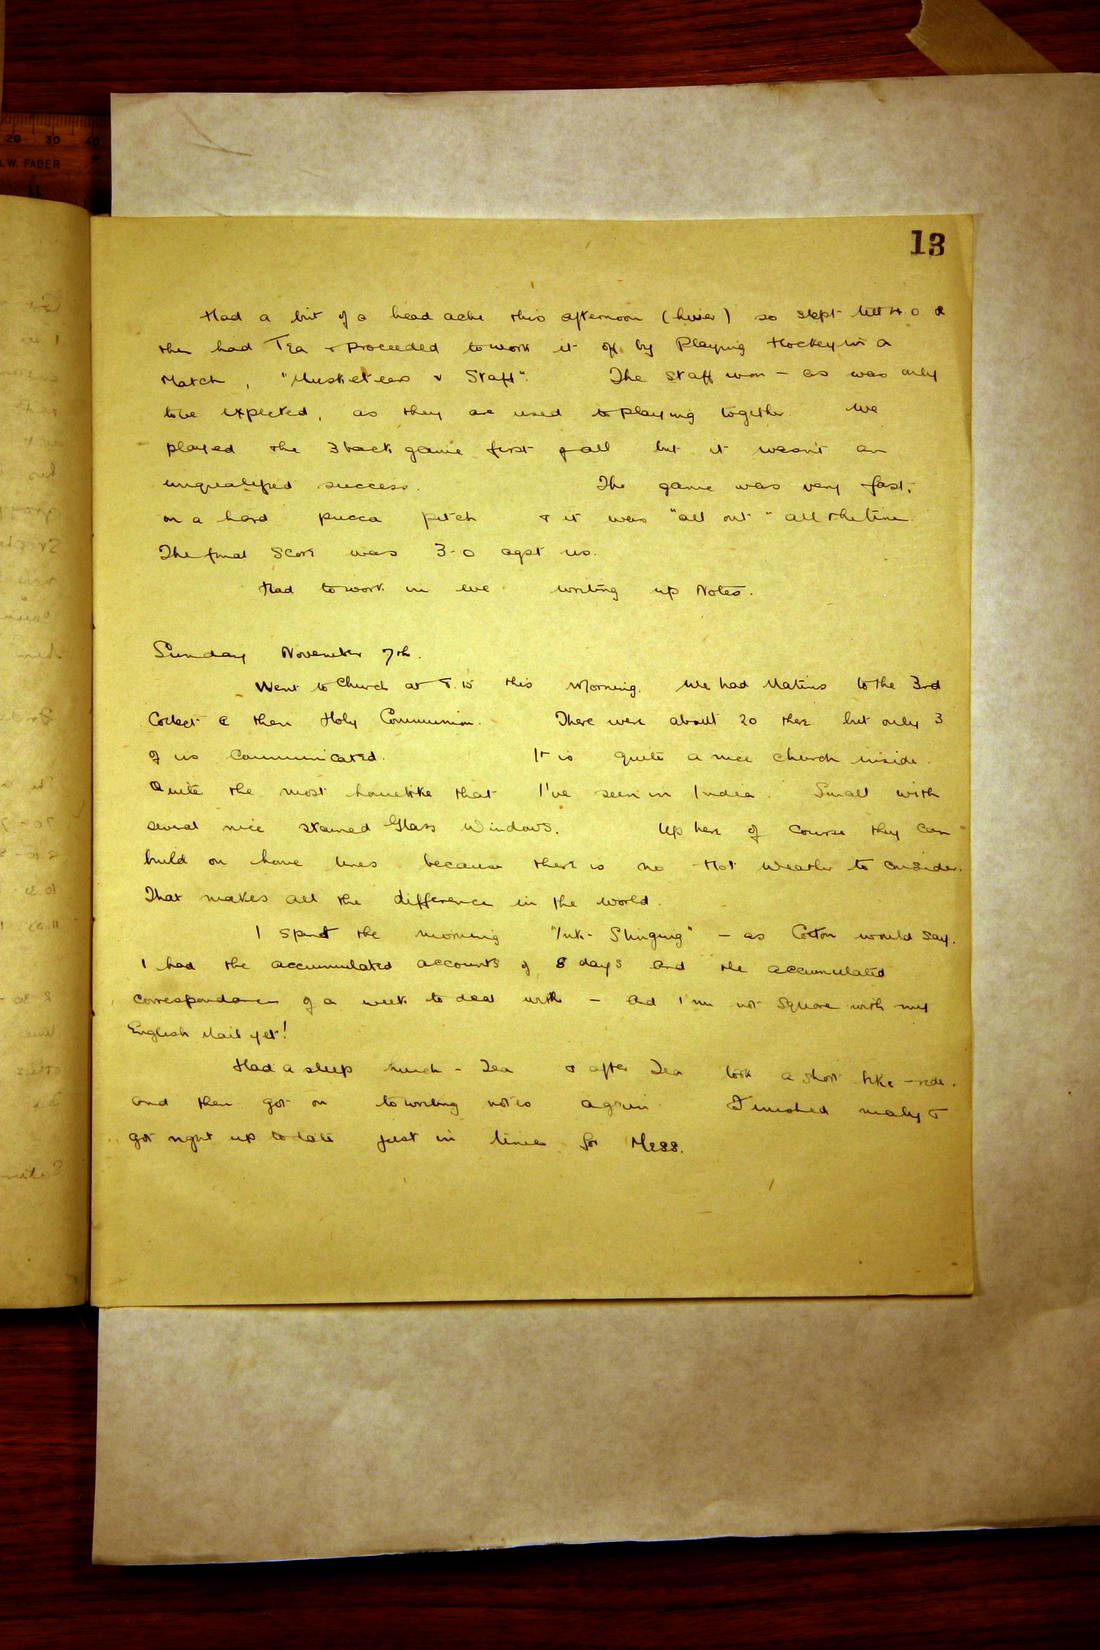 13
Had a bit of a head ache this afternoon (liver) so slept till 4.0 &
then had Tea & proceeded to work it off by Playing Hockey in a
Match, "Musketeers v Staff". The Staff won - as was only
to be expected, as they are used to playing together. We
played the 3 back game first of all but it wasn't an
unqualified success. The game was very fast,
on a hard pucca pitch & it was "all out" all the time
The final Score was 3-0 agst us.
Had to work in eve writing up Notes.
Sunday November 7th.
Went to Church at 8.15 this Morning. We had Matins to the 3rd
Collect & then Holy Communion. There were about 20 there but only 3
of us communicated. It is quite a nice church inside.
Quite the most homelike that I've seen in India. Small with
several nice stained Glass Windows. Up here of course they can
build on home lines because there is no Hot Weather to consider.
That makes all the difference in the world.
I spent the morning "Ink-Slinging" - as Cotton would say.
I had the accumulated accounts of 8 days and the accumulated
correspondence of a week to deal with - And I'm not Square with my
English Mail yet!
Had a sleep lunch - Tea & after Tea took a short bike-ride.
and then got on to writing notes again. Finished
got right up to date just in time for Mess.
20 30 40
W. FABER
11